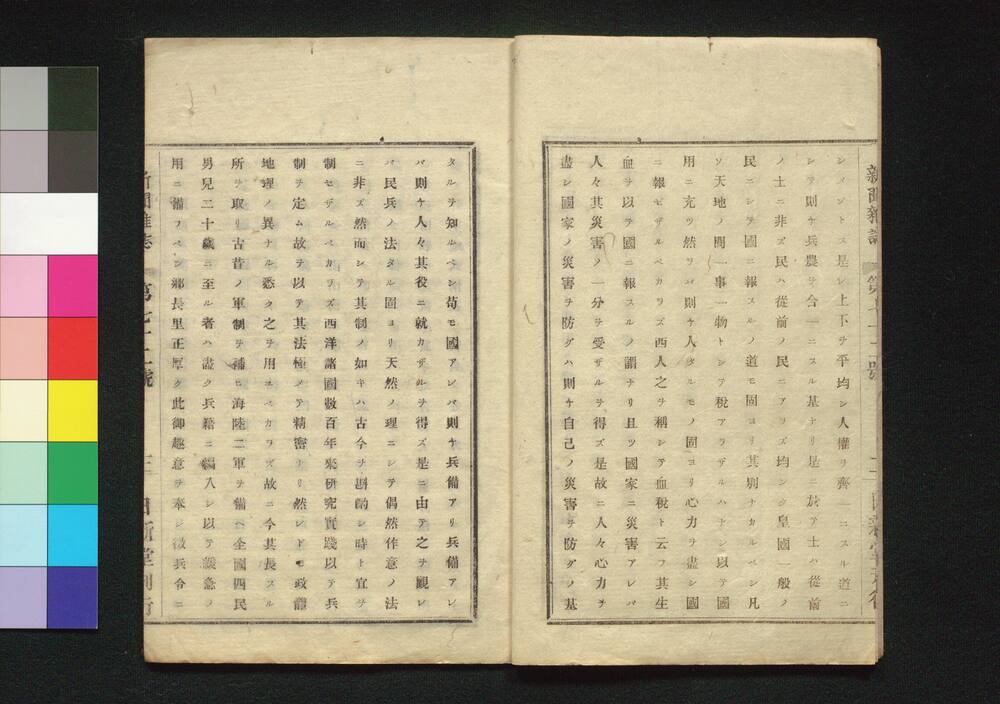 新聞雜誌
シメントス是レ上下ヲ平均シ人權ヲ齊一ニスル道ニ
シテ則ケ兵農ヲ合一ニスル基ナリ是ニ於テ士ハ從前
ノ士ニ非ズ民ハ從前ノ民ニアラズ均シク皇國一般ノ
民ニシテ國ニ報スルノ道モ固ヨリ其別ナカルベシ凡
ソ天地ノ間一事一物トシテ税アラザルハナシ以テ國
用ニ充ツ然ラバ則ケ人タルモノ固ヨリ心力ヲ盡シ國
ニ報ゼザルベカラズ西人之ヲ稱シテ血税ト云フ其生
血ヲ以テ國ニ報スルノ謂ナリ且ツ國家ニ災害アレバ
人々其災害ノ一分ヲ受ザルヲ得ズ是故ニ人々心力ヲ
盡シ國家ノ災害ヲ防グハ則ケ自己ノ災害ヲ防グノ基
タルヲ知ルベシ苟モ國アレバ則ケ兵備アリ兵備アレ
バ則ケ人々其役ニ就カザルヲ得ズ是ニ由テ之ヲ觀レ
バ民兵ノ法タル固ヨリ天然ノ理ニシテ偶然作意ノ法
ニ非ズ然而シテ其制ノ如キハ古今ヲ斟酌シ時ト宜ヲ
制セザルベカラズ西洋諸國數百年來研究實踐以テ兵
制ヲ定ム故ヲ以テ其法極メテ精密ナリ然レドモ政體
地理ノ異ナル悉ク之ヲ用ユベカラズ故ニ今其長スル
所ヲ取リ古昔ノ軍制ヲ補ヒ海陸二軍ヲ備ヘ全國四民
男兒二十歲ニ至ル者ハ盡ク兵籍ニ編入シ以テ緩急ノ
用ニ備フベシ鄕長里正厚ク此御趣意ヲ奉シ徵兵令ニ
新聞雜誌 第七十二號